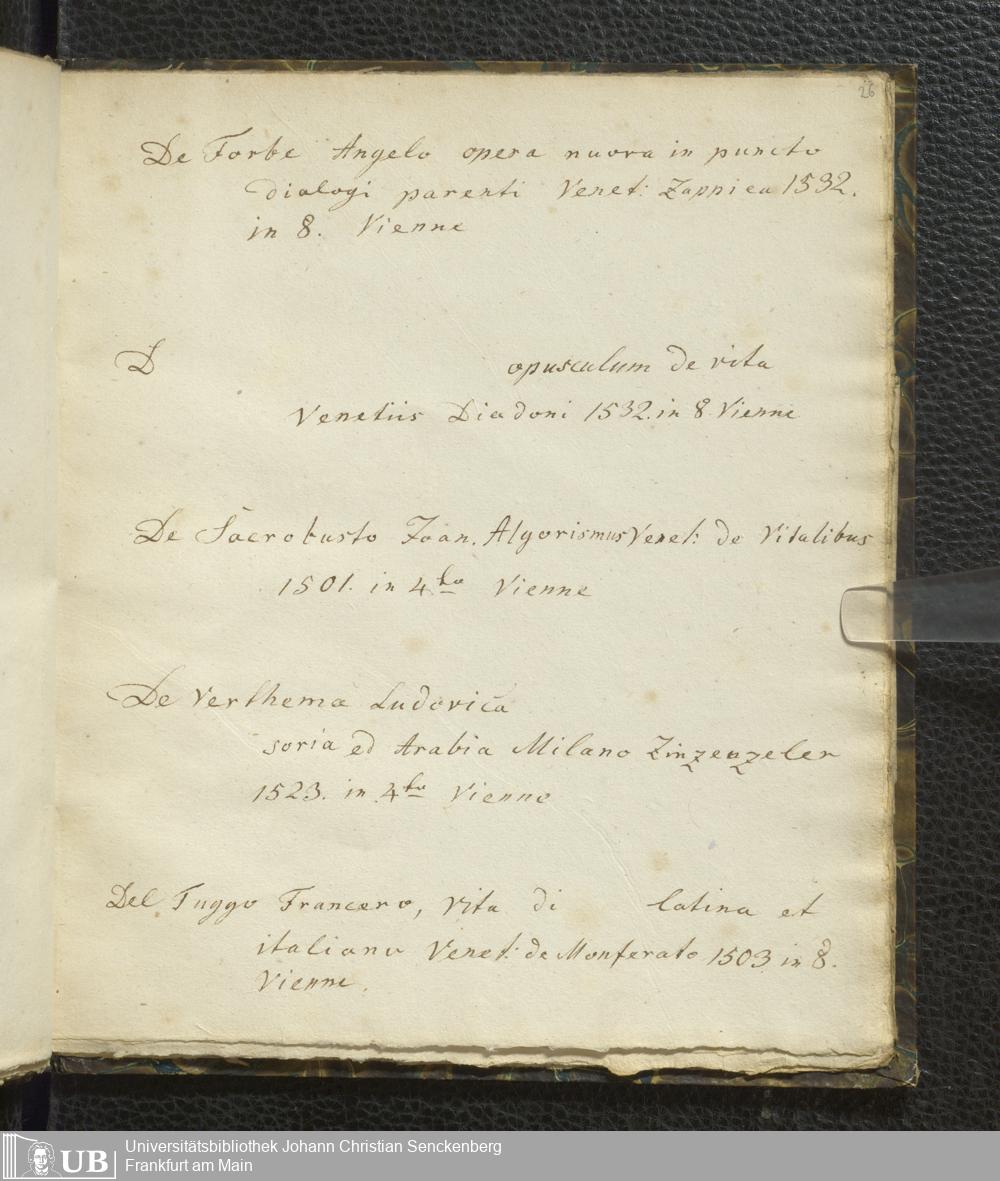 26
De Forte Angelo opera nuova in puncto
dialogi parenti Venet: Zoppiea 1532.
in 8. Vienne
D opusculum de vita
Venetiis Diadoni 1532. in 8 Vienne
De Sacrobusto Joan. Algorismus Venet: de Vitalibus
1501. in 4to Vienne
De Verthema Ludovica
soria ed Arabia Milano Zinzenzeler
1523. in 4to Vienne
Del Tuggo Francero, vita di latina et
italiana Venet: de Monferato 1503 in 8.
Vienne.
UB Universitätsbibliothek Johann Christian Senckenberg
Frankfurt am Main